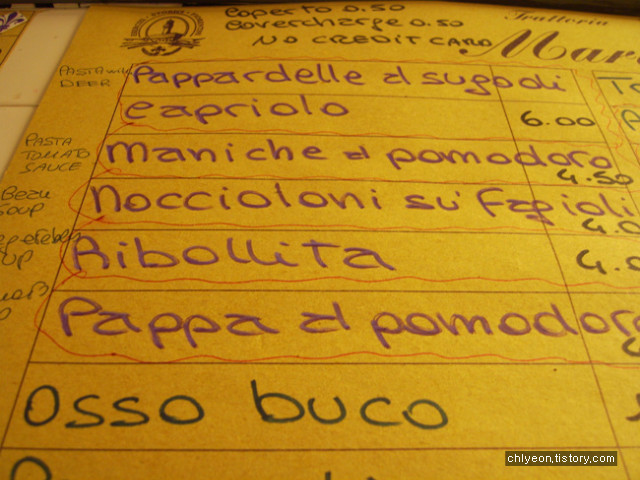 coperto 0.50
covercharge 0.50
NO CREDIT CARD
Trattoria
Mar
PASTA with DEER
Pappardelle al sugo di
capriolo
6.00
PASTA TOMATO SAUCE
Maniche al pomodoro
4.50
Bean SOUP
Noccioloni su' fagioli
4.0
Ribollita
4.
Pappa al pomodoro
Osso buco
chlyeon.tistory.com